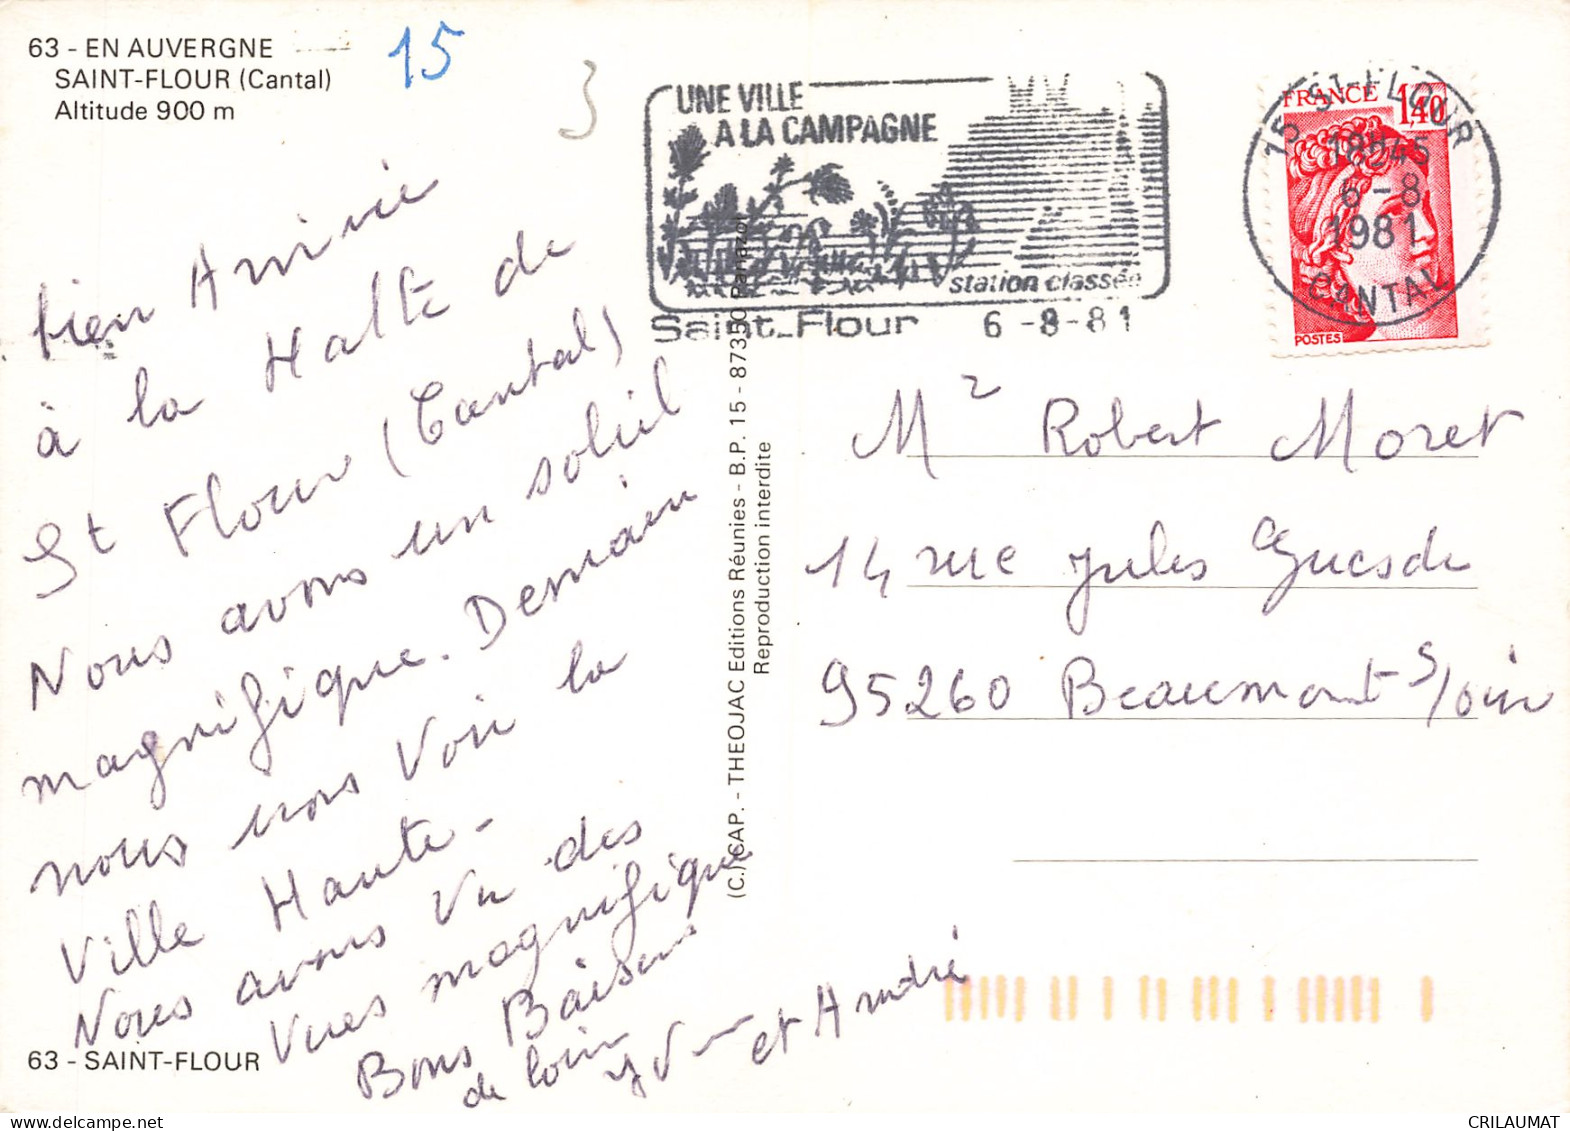 63 - EN AUVERGNE
SAINT-FLOUR (Cantal)
Altitude 900 m
15
3
bien Arrivé
à la Halte de
St Flour (Cantal)
Nous avons un soleil
magnifique. Demain
nous irons voir la
Ville Haute -
Nous avons vu des
vues magnifique
Bons Baisers
de loin
et André
63 - SAINT-FLOUR
(C.) CAP. - THEOJAC Editions Réunies - B.P. 15 - 87350 Panazol
Reproduction interdite
UNE VILLE
A LA CAMPAGNE
station classée
Saint-Flour 6-8-81
FRANCE 1,40
POSTES
15 ST-FLOUR
18H45
6-8
1981
CANTAL
Mr Robert Moret
14 rue Jules Guesde
95260 Beaumont s/oise
CRILAUMAT